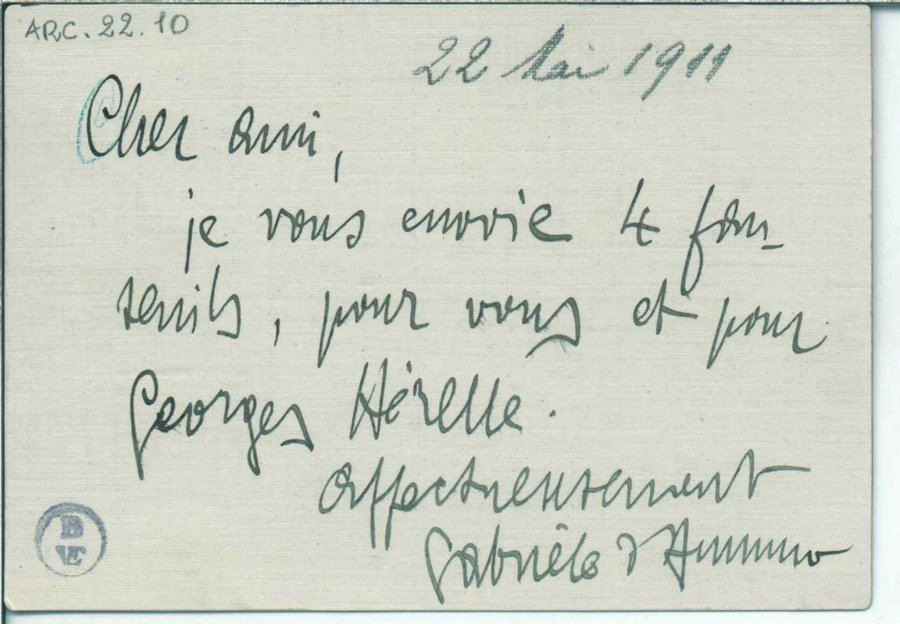 ARC. 22. 10
22 Mai 1911
Cher ami,
je vous envoie 4 fau-
teuils, pour vous et pour
Georges Hérelle.
Affectueusement
Gabriele d'Annunzio